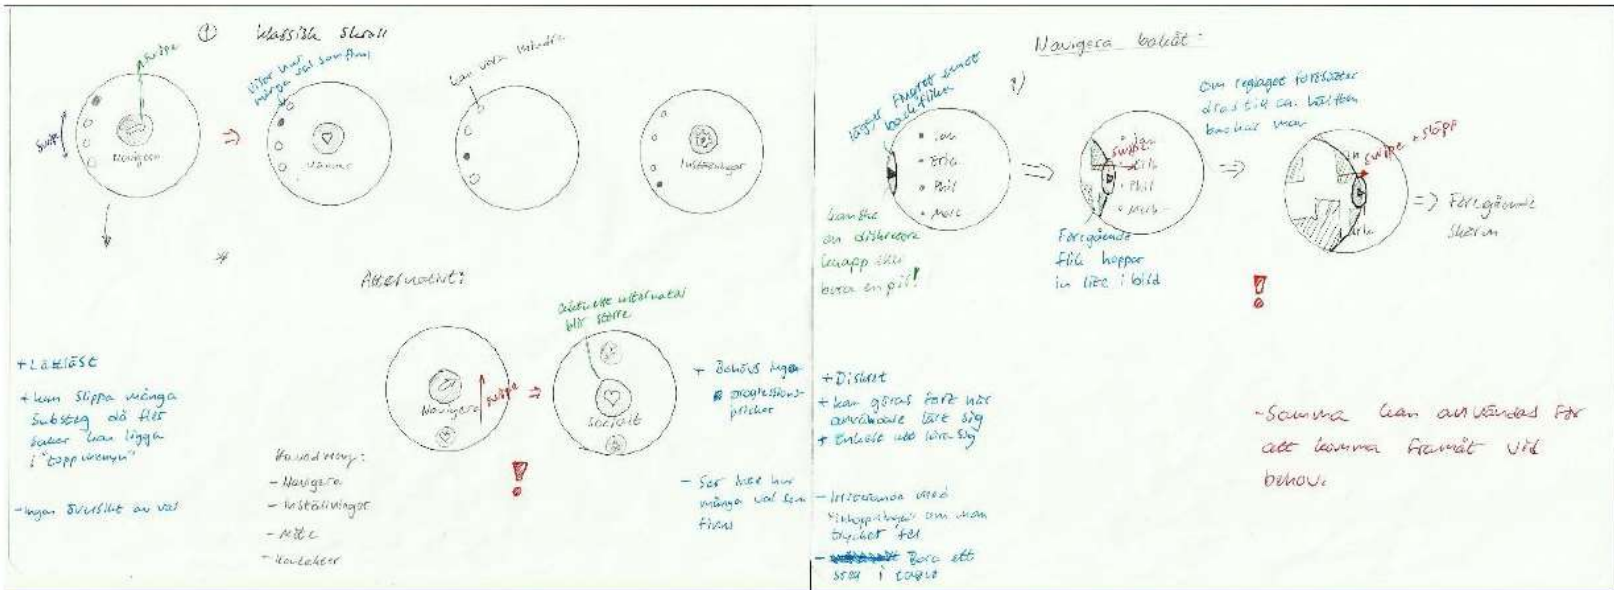 ① Klassisk skroll
swipe
swipe
Navigera
Visar hur
många val som finns
Vänner
kan vara mindre
Inställningar
Alternativt:
swipe
Navigera
alternativ
blir större
Socialt
+ Lättläst
+ kan slippa många
substeg då fler
saker kan ligga
i "toppmenyn"
- Ingen översikt av val
Huvudmeny:
- Navigera
- Inställningar
- Möte
- Kontakter
+ Behövs inga
progressions-
prickar
- Ser inte hur
många val som
finns
Navigera bakåt:
1)
lägg fingret emot
bakfliken
• Jan
• Erik
• Phil
• Marc
kanske
en diskretare
knapp
bara en pil!
swipe
Erik
• Phil
• Marc
Föregående
flik hoppar
in lite i bild
Om reglaget fortsätter
dras till ca. hälften
backar man
swipe + släpp
=> Föregående
skärm
+ Diskret
+ kan göras fort när
användare lärt sig
+ Enkelt att lära sig
- Irriterande med
om man
trycker fel
- Bara ett
steg i taget
- Samma kan användas för
att komma framåt vid
behov.